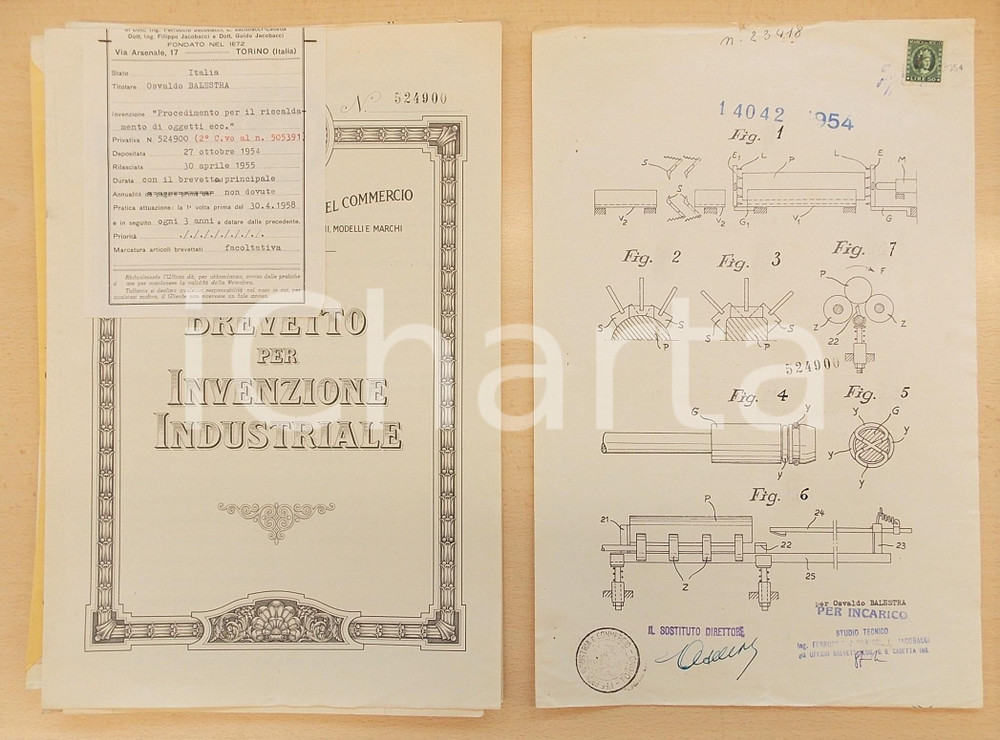 di Dott. Ing. Ferruccio Jacobacci, E. Jacobacci-Casetta
Dott. Ing. Filippo Jacobacci e Dott. Guido Jacobacci
FONDATO NEL 1872
Via Arsenale, 17 TORINO (Italia)
Stato Italia
Titolare Osvaldo BALESTRA
Invenzione "Procedimento per il riscalda-
mento di oggetti ecc."
Privativa N. 524900 (2° C.vo al n. 505391)
Depositata 27 ottobre 1954
Rilasciata 30 aprile 1955
Durata con il brevetto principale
Annualità non dovute
Pratica attuazione: la 1ª volta prima del 30.4.1958
e in seguito ogni 3 anni a datare dalla precedente.
Priorità ./././././././.
Marcatura articoli brevettati facoltativa
N 524900
EL COMMERCIO
I, MODELLI E MARCHI
BREVETTO
PER
INVENZIONE
INDUSTRIALE
iCharta
n. 23418
LIRE 50
14042 954
Fig. 1
S E1 L P L E M
S
V2 V2 G1 V1 G
Fig. 2 Fig. 3 Fig. 7
P F
S S S
P P
Z Z
22
524900
Fig. 4 Fig. 5
G y G y
y
y y
Fig. 6
P
21 24
22 23
25
Z
per Osvaldo BALESTRA
PER INCARICO
IL SOSTITUTO DIRETTORE
STUDIO TECNICO